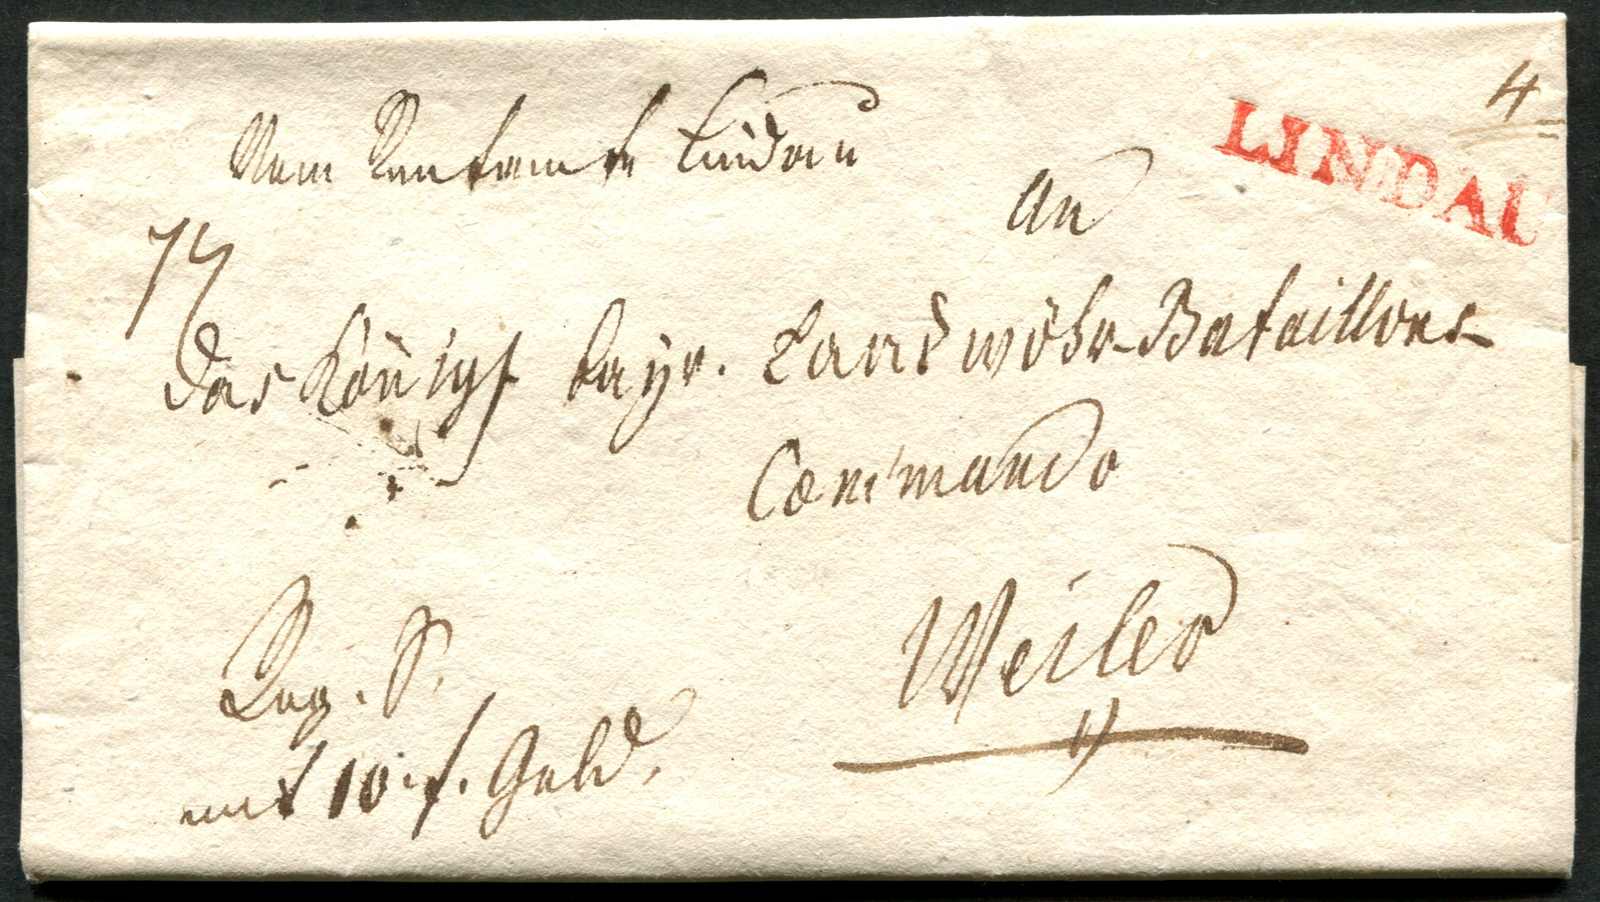 4
LINDAU
Vom Rentamte Lindau
An
das Königl bayr. Landwehr-Bataillons-
Commando
Weiler
Reg. S.
mit 10. f. Geld.